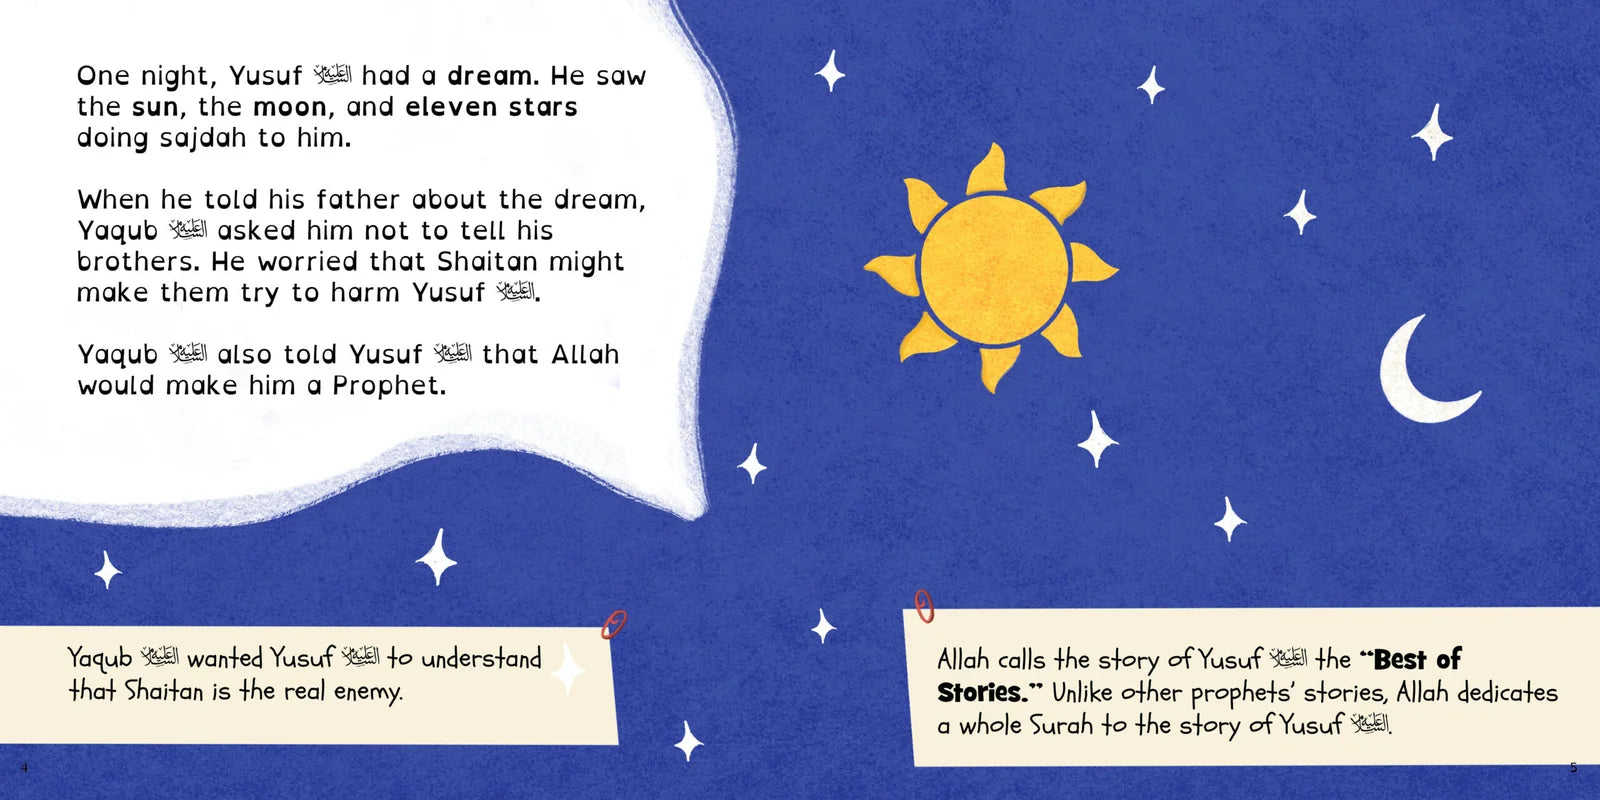 One night, Yusuf عليه السلام had a dream. He saw
the sun, the moon, and eleven stars
doing sajdah to him.
When he told his father about the dream,
Yaqub عليه السلام asked him not to tell his
brothers. He worried that Shaitan might
make them try to harm Yusuf عليه السلام.
Yaqub عليه السلام also told Yusuf عليه السلام that Allah
would make him a Prophet.
Yaqub عليه السلام wanted Yusuf عليه السلام to understand
that Shaitan is the real enemy.
4
Allah calls the story of Yusuf عليه السلام the “Best of
Stories.” Unlike other prophets’ stories, Allah dedicates
a whole Surah to the story of Yusuf عليه السلام.
5